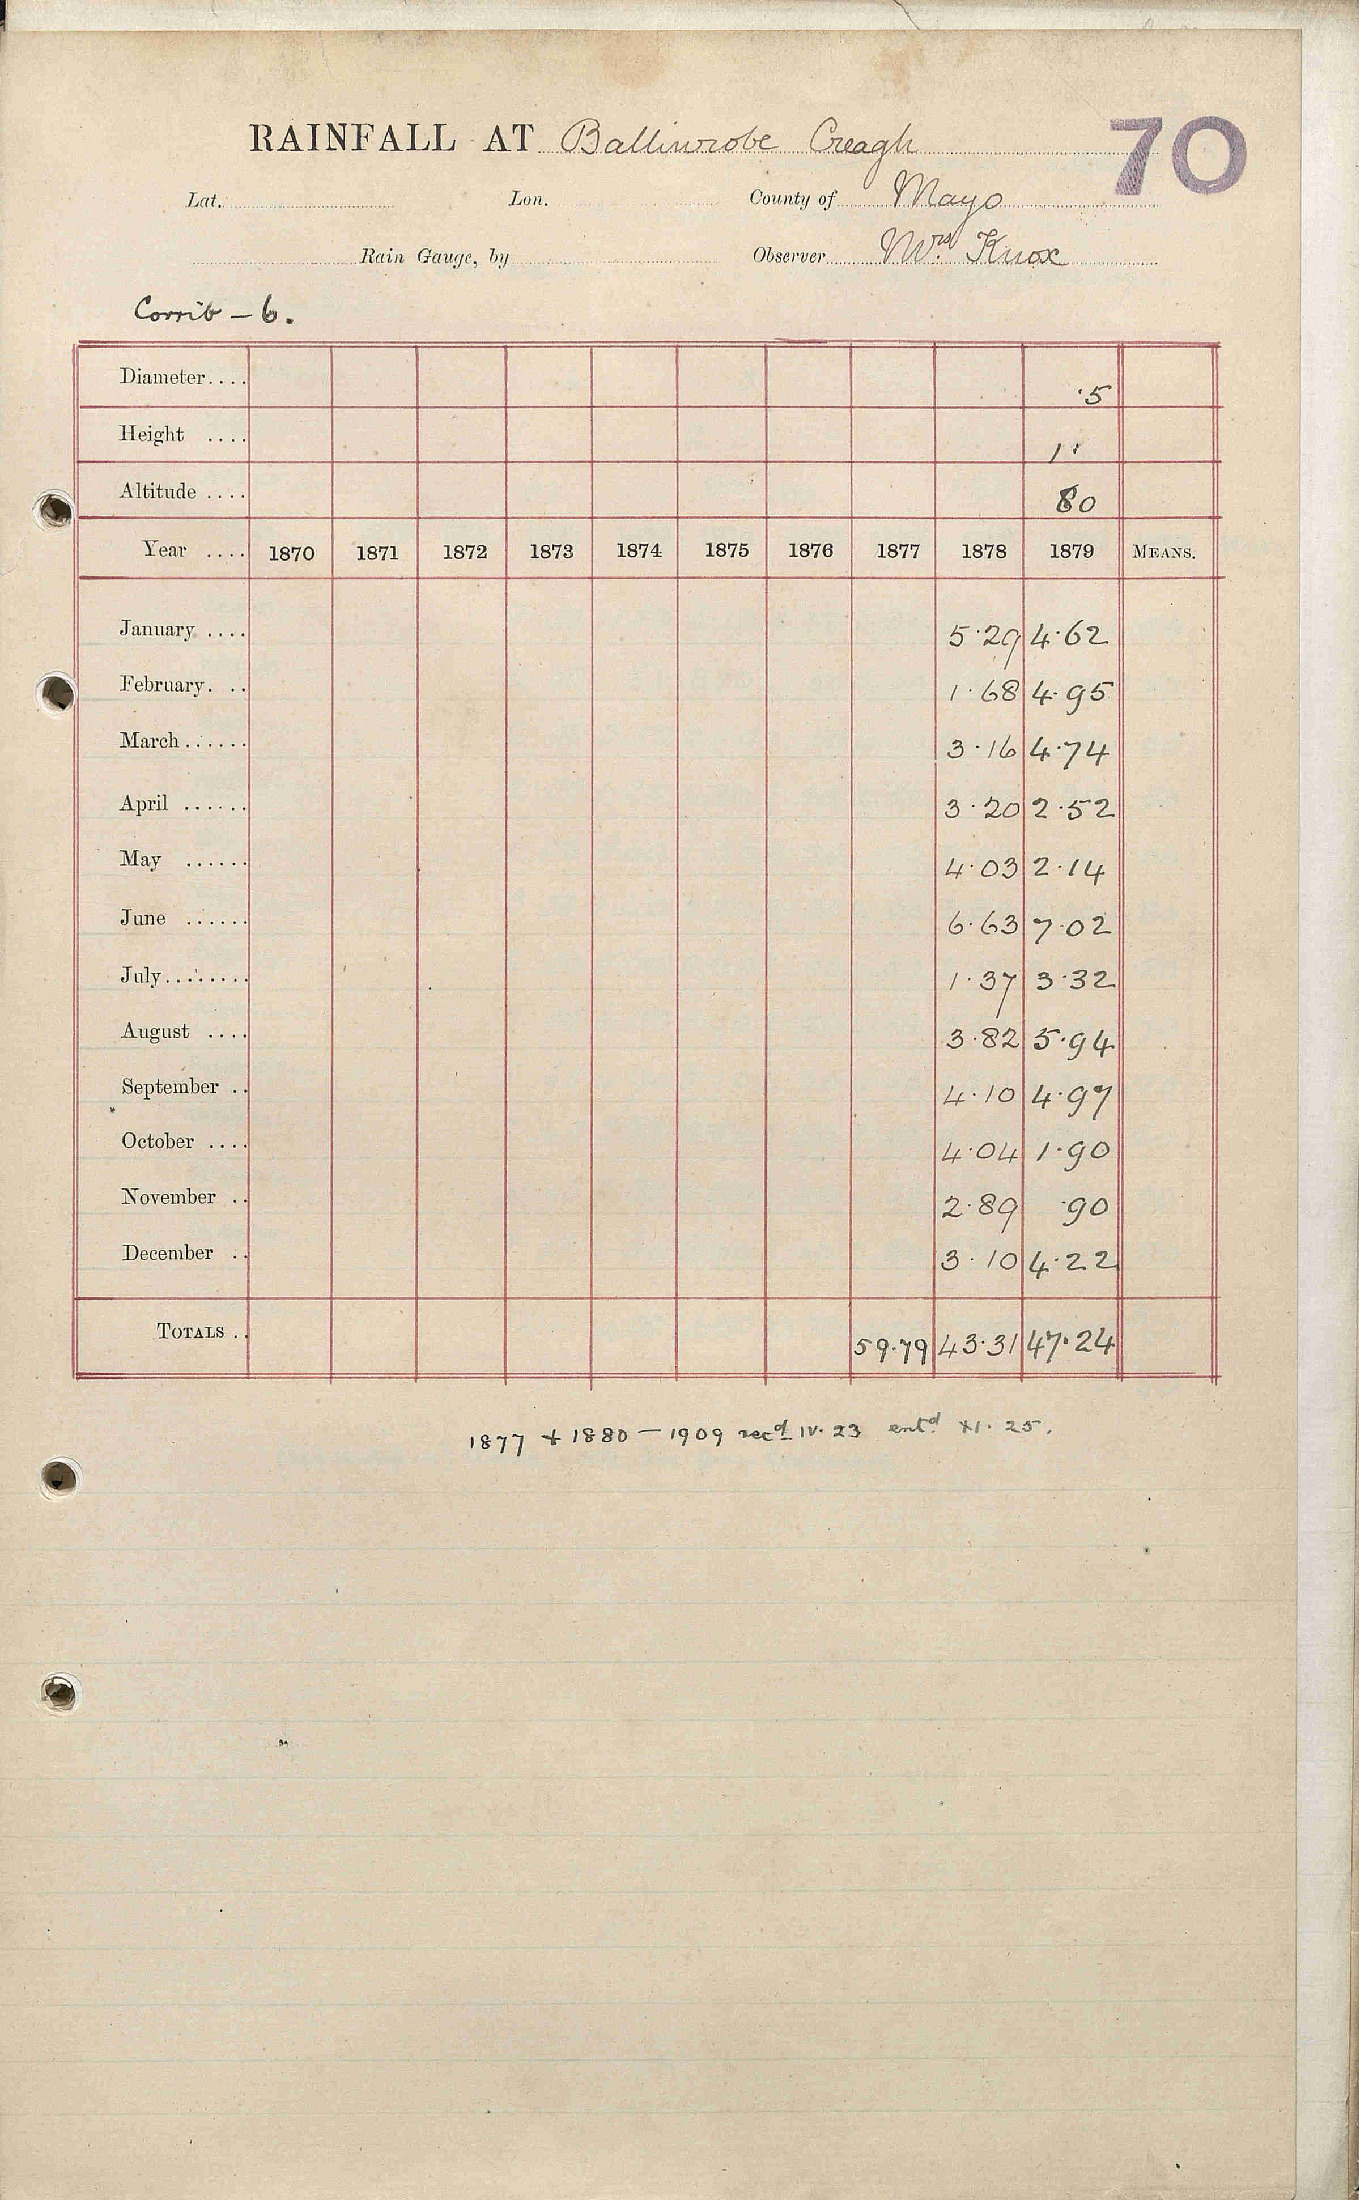 RAINFALL AT Ballinrobe Creagh 70
Lat. Lon. County of Mayo
Rain Gauge, by Observer Mrs. Knox
Corrib – 6.
Diameter.... ·5
Height .... 1·
Altitude .... 80
Year .... 1870 1871 1872 1873 1874 1875 1876 1877 1878 1879 MEANS.
January .... 5·29 4·62
February. .. 1·68 4·95
March...... 3·16 4·74
April ...... 3·20 2·52
May ...... 4·03 2·14
June ...... 6·63 7·02
July........ 1·37 3·32
August .... 3·82 5·94
September .. 4·10 4·97
October .... 4·04 1·90
November .. 2·89 ·90
December .. 3·10 4·22
TOTALS .. 59·79 43·31 47·24
1877 + 1880 – 1909 recd IV·23 entd XI·25.